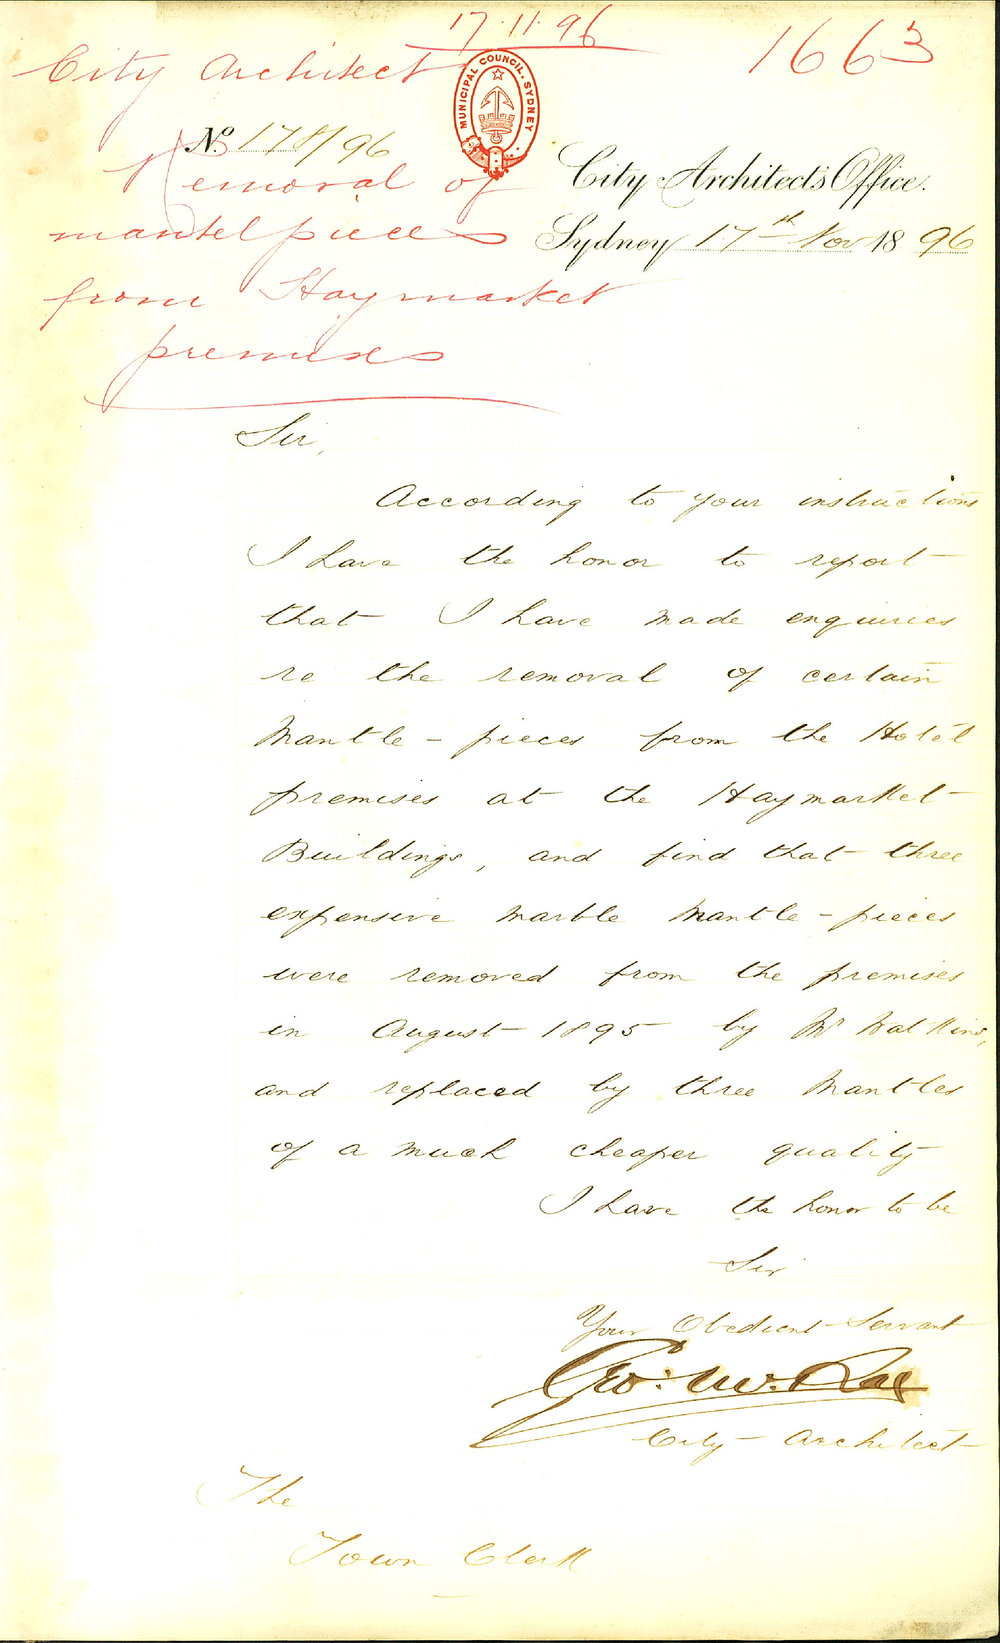 17.11.96
1663
City Architect
MUNICIPAL COUNCIL. SYDNEY
No. 178/96
Removal of
mantelpieces
from Haymarket
premises
City Architect's Office.
Sydney 17th Nov 1896
Sir,
According to your instructions
I have the honor to report
that I have made enquiries
re the removal of certain
Mantle-pieces from the Hotel
premises at the Haymarket
Buildings, and find that three
expensive marble mantle-pieces
were removed from the premises
in August 1895 by Mr Watkins,
and replaced by three Mantles
of a much cheaper quality
I have the honor to be
Sir
Your Obedient Servant
Geo: McRae
City Architect
The
Town Clerk